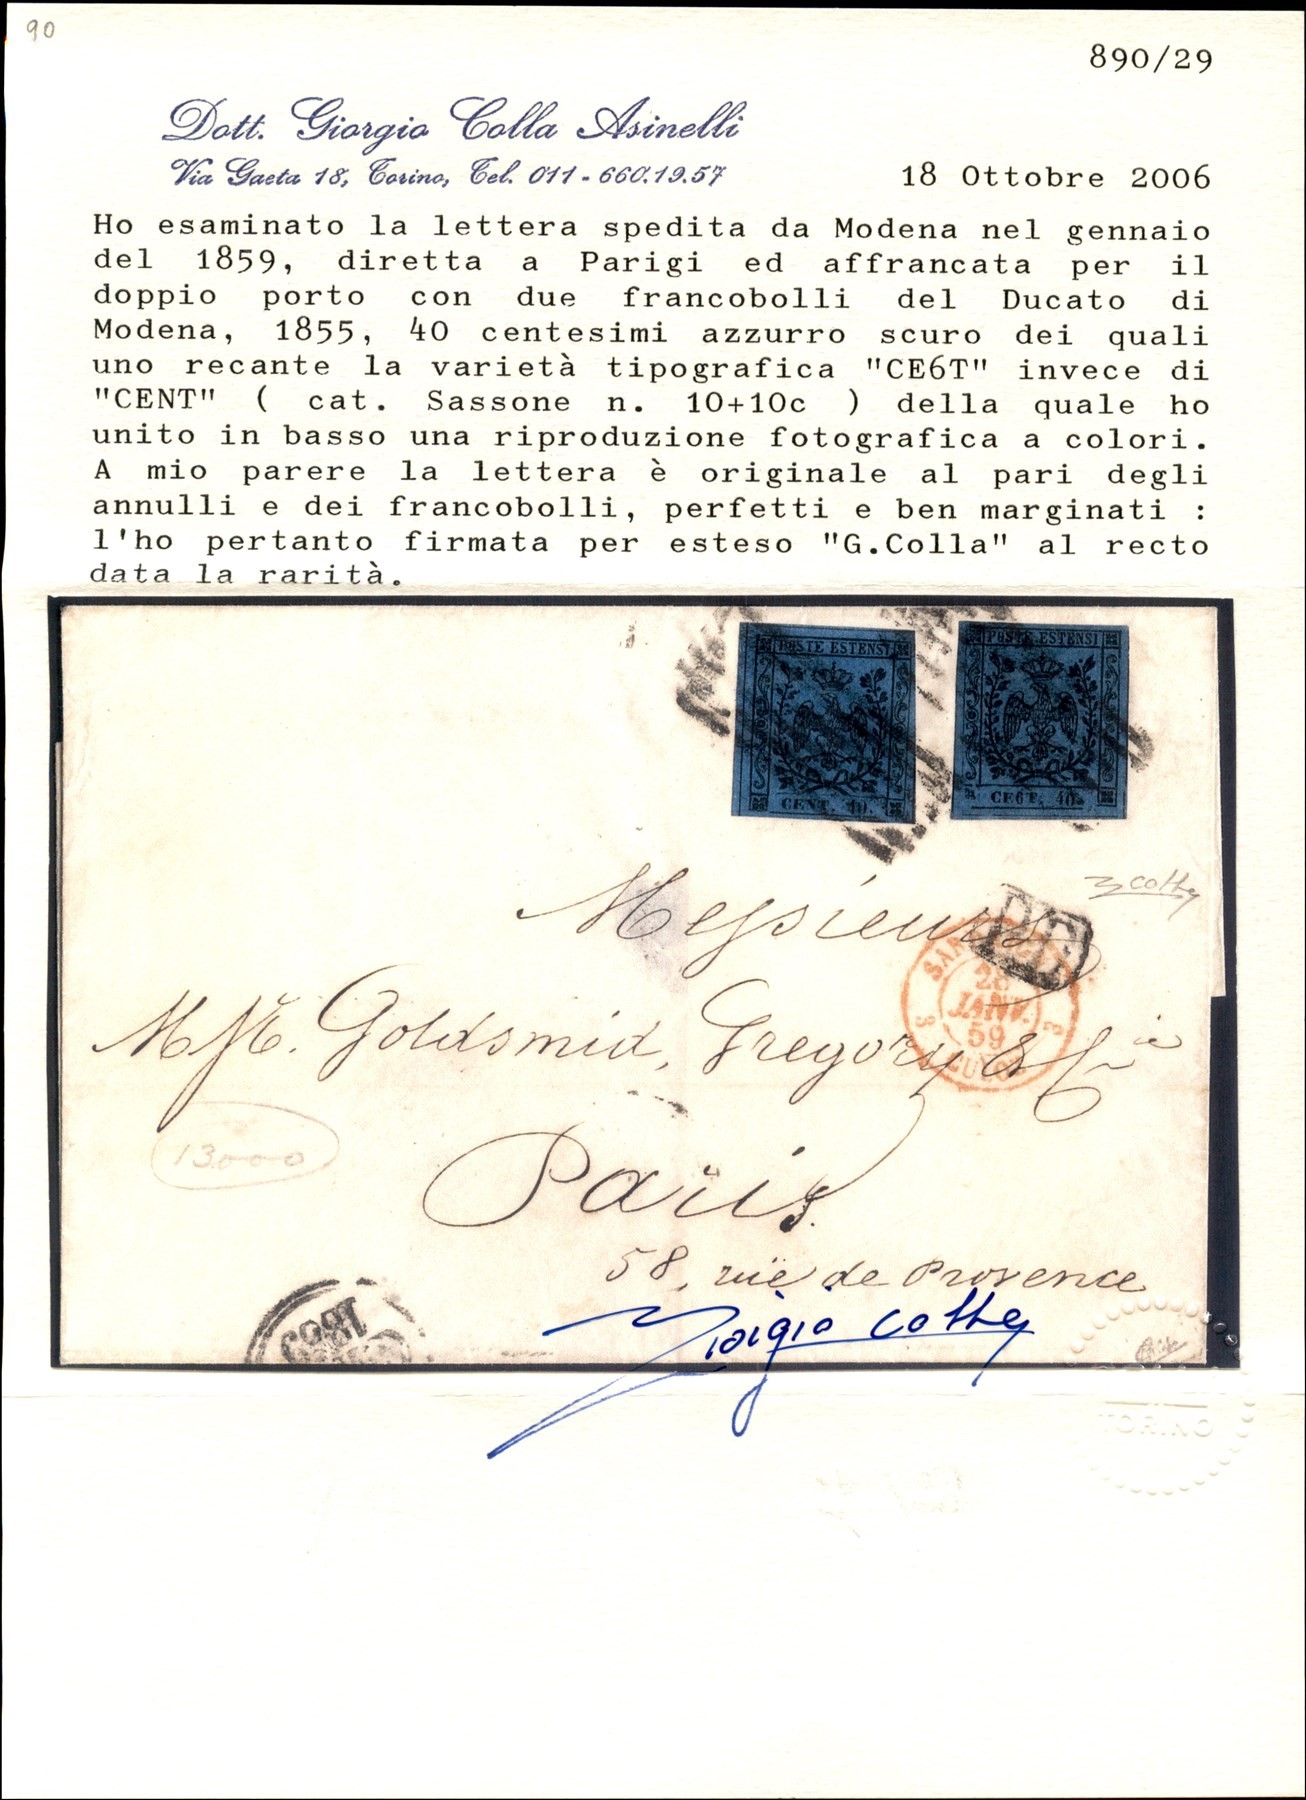 90
890/29
Dott. Giorgio Colla Asinelli
Via Gaeta 18, Torino, Tel. 011 - 660.19.57
18 Ottobre 2006
Ho esaminato la lettera spedita da Modena nel gennaio
del 1859, diretta a Parigi ed affrancata per il
doppio porto con due francobolli del Ducato di
Modena, 1855, 40 centesimi azzurro scuro dei quali
uno recante la varietà tipografica "CE6T" invece di
"CENT" ( cat. Sassone n. 10+10c ) della quale ho
unito in basso una riproduzione fotografica a colori.
A mio parere la lettera è originale al pari degli
annulli e dei francobolli, perfetti e ben marginati :
l'ho pertanto firmata per esteso "G.Colla" al recto
data la rarità.
POSTE ESTENSI
CENT. 40.
POSTE ESTENSI
CE6T. 40.
G Colla
Messieurs
P.D.
28
JANV.
59
M M. Goldsmid, Gregory & Cie
13000
Paris.
58, rüe de Provence
Giorgio Colla
TORINO